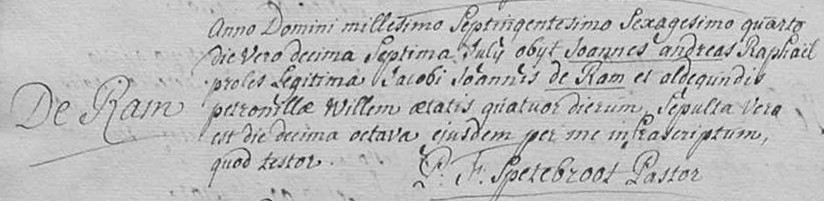 Anno Domini millesimo Septingentesimo Sexagesimo quarto
die vero decima Septima July obyt Joannes andreas Raphaël
proles Legitima Jacobi Joannis de Ram et aldegundis
De Ram
petronillæ Willem ætatis quatuor dierum, Sepulta vero
est die decima octava ejusdem per me infrascriptum,
quod testor.
F. Spetebroot Pastor